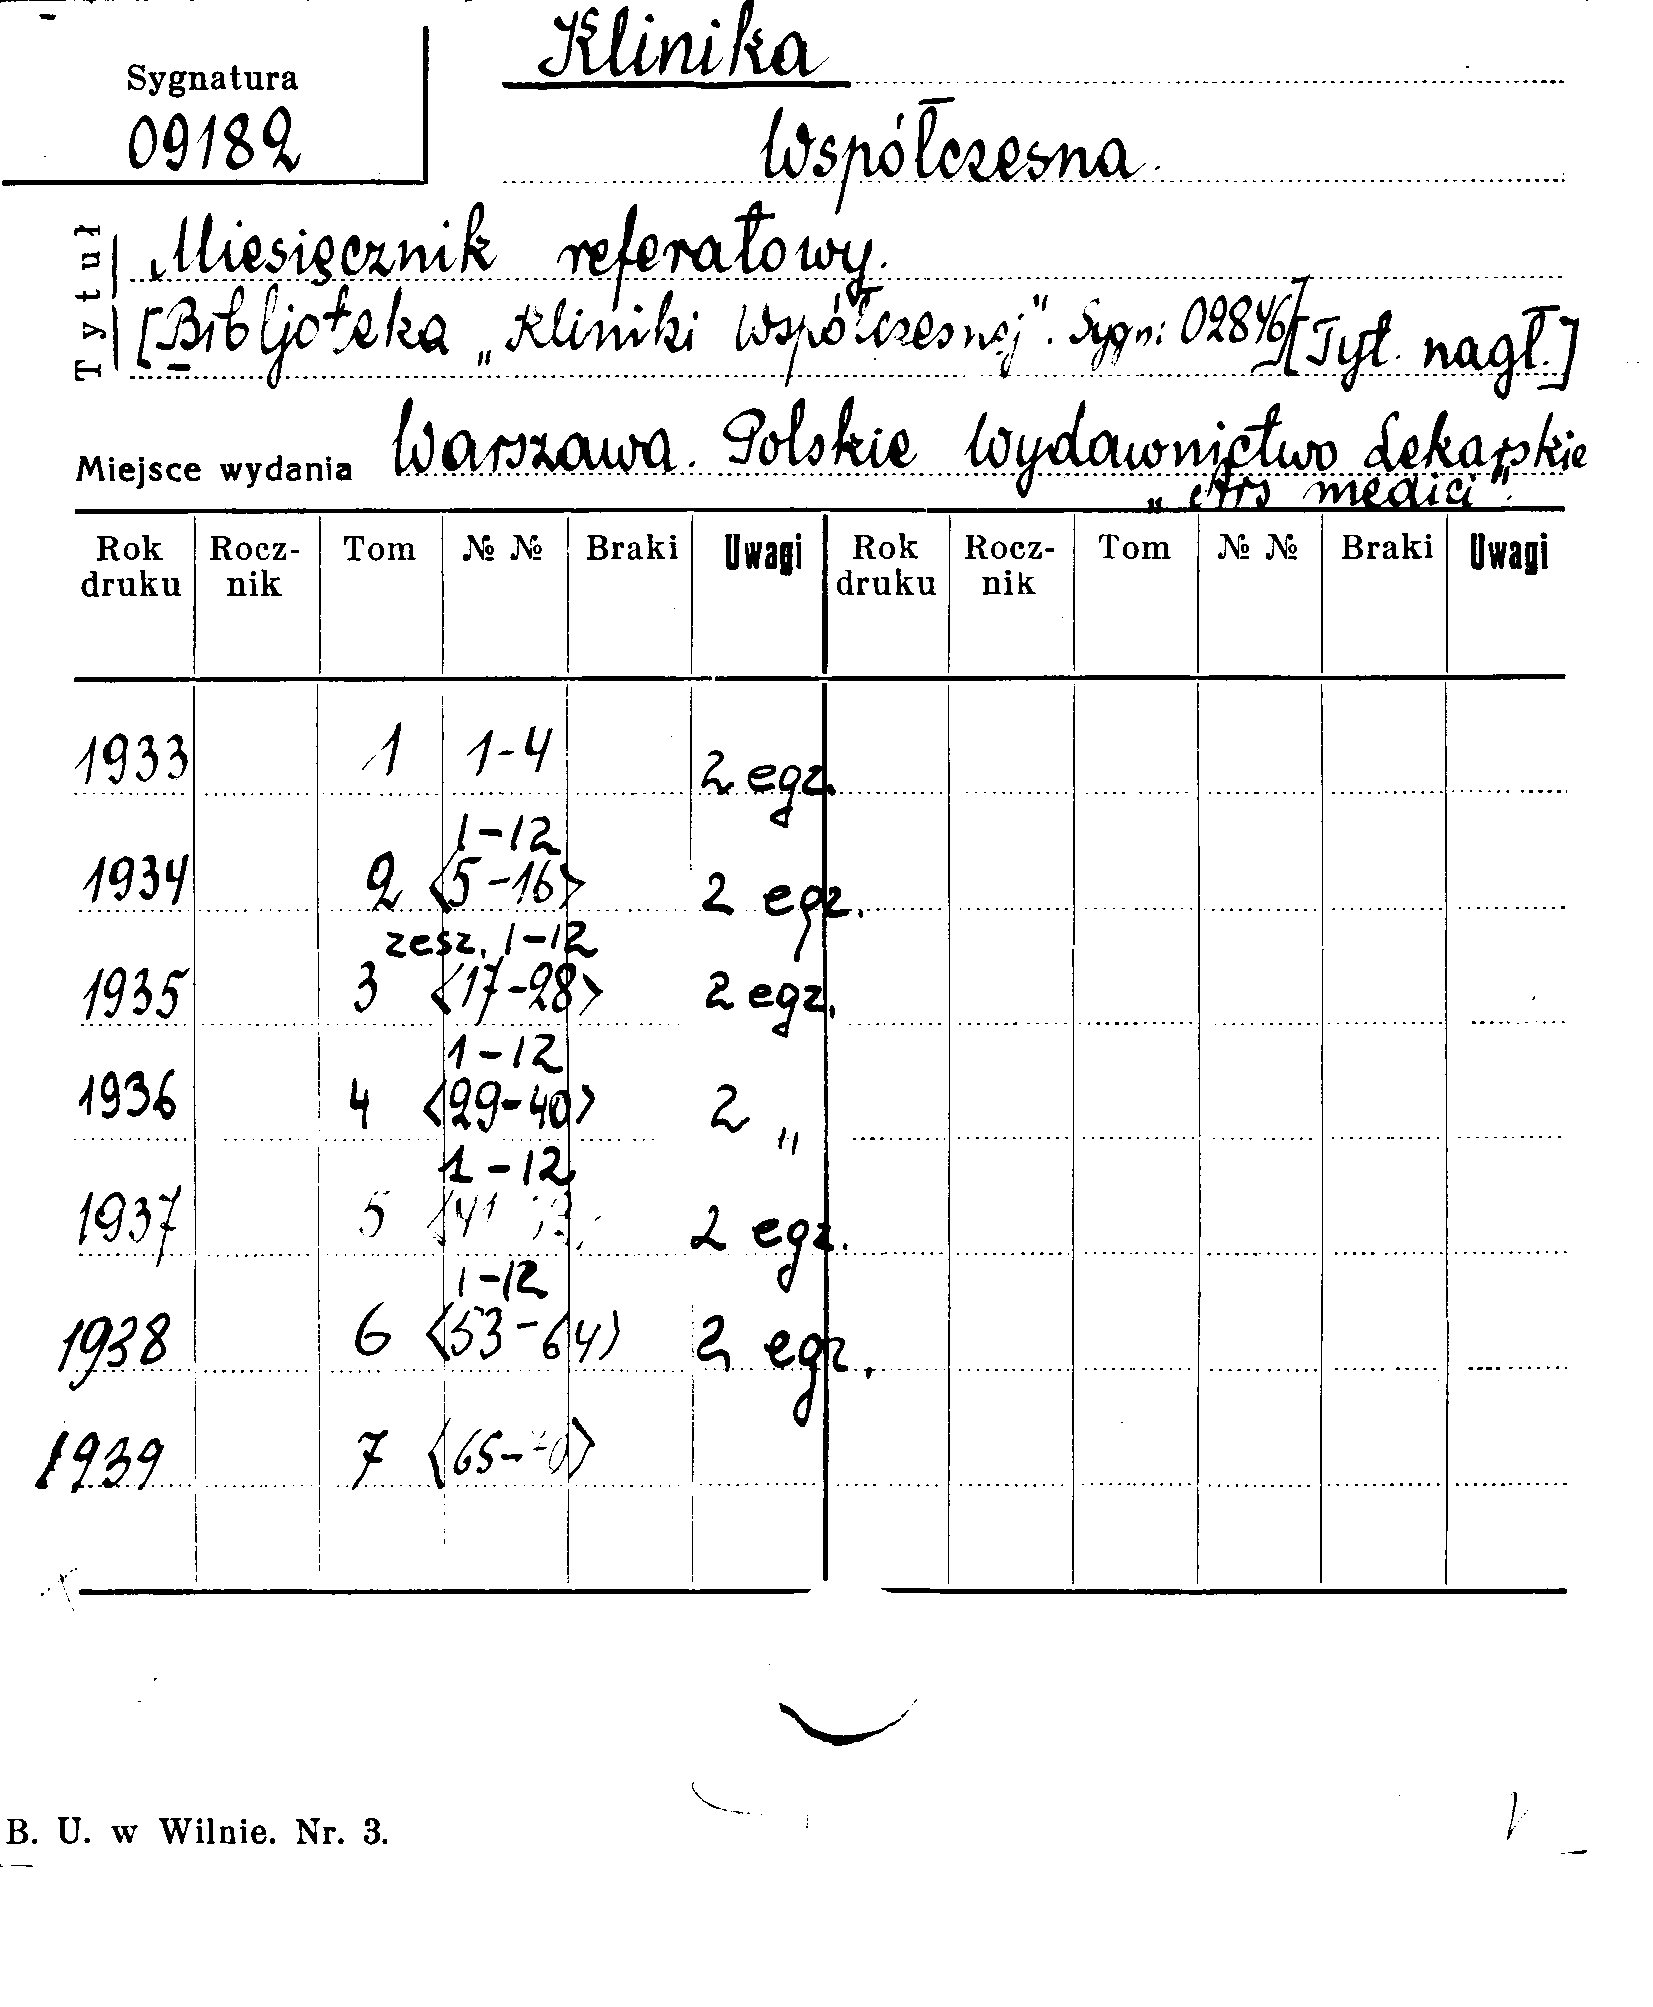 Klinika
Sygnatura
09182
Współczesna.
Tytuł
Miesięcznik referatowy.
[Bibljoteka „Kliniki Współczesnej". Sygn: 02846] [Tyt. nagł.]
Miejsce wydania Warszawa. Polskie Wydawnictwo Lekarskie
„Ars medici".
Rok druku Rocz-nik Tom № № Braki Uwagi Rok druku Rocz-nik Tom № № Braki Uwagi
1933 1 1-4 2 egz.
1-12
1934 2 <5-16> 2 egz.
zesz. 1-12
1935 3 <17-28> 2 egz.
1-12
1936 4 <29-40> 2 „
1-12
1937 5 <41 2 egz.
1-12
1938 6 <53-64> 2 egz.
1939 7 <65-70>
B. U. w Wilnie. Nr. 3.